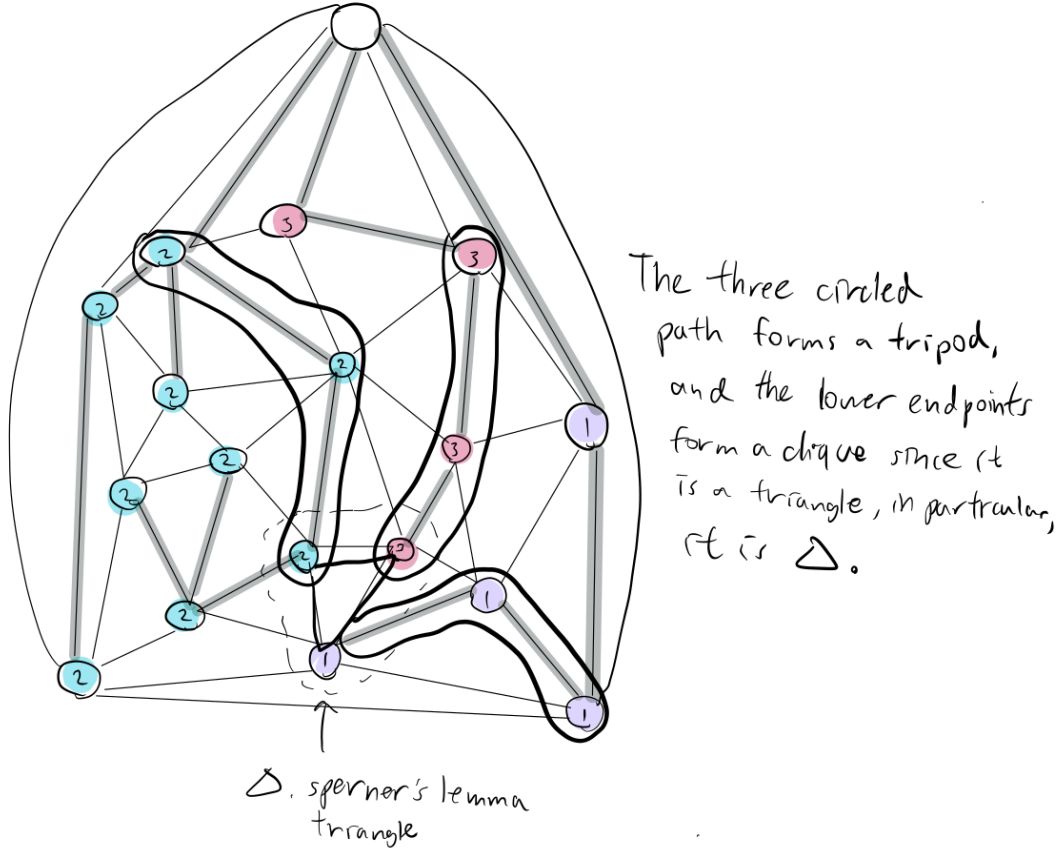 3
2
3
2
2
2
1
3
2
2
2
3
1
2
1
2
1
The three circled
path forms a tripod,
and the lower endpoints
form a clique since it
is a triangle, in particular,
it is △.
△. sperner's lemma
triangle